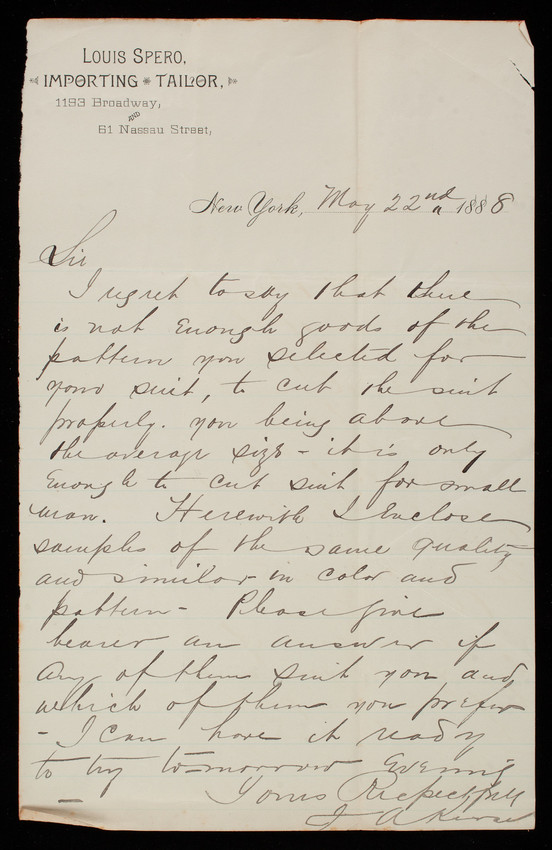 LOUIS SPERO,
IMPORTING * TAILOR,
1193 Broadway,
AND
61 Nassau Street,
New York, May 22nd 1888
Sir
I regret to say that there
is not Enough goods of the
pattern you selected for
your suit, to cut the suit
properly. you being above
the average size - it is only
Enough to cut suit for small
man. Herewith I Enclose
samples of the same quality
and similar in color and
pattern - Please give
bearer an answer if
any of them suit you and
which of them you prefer
- I can have it ready
to try to-morrow Evening
Yours Respectfull
J A